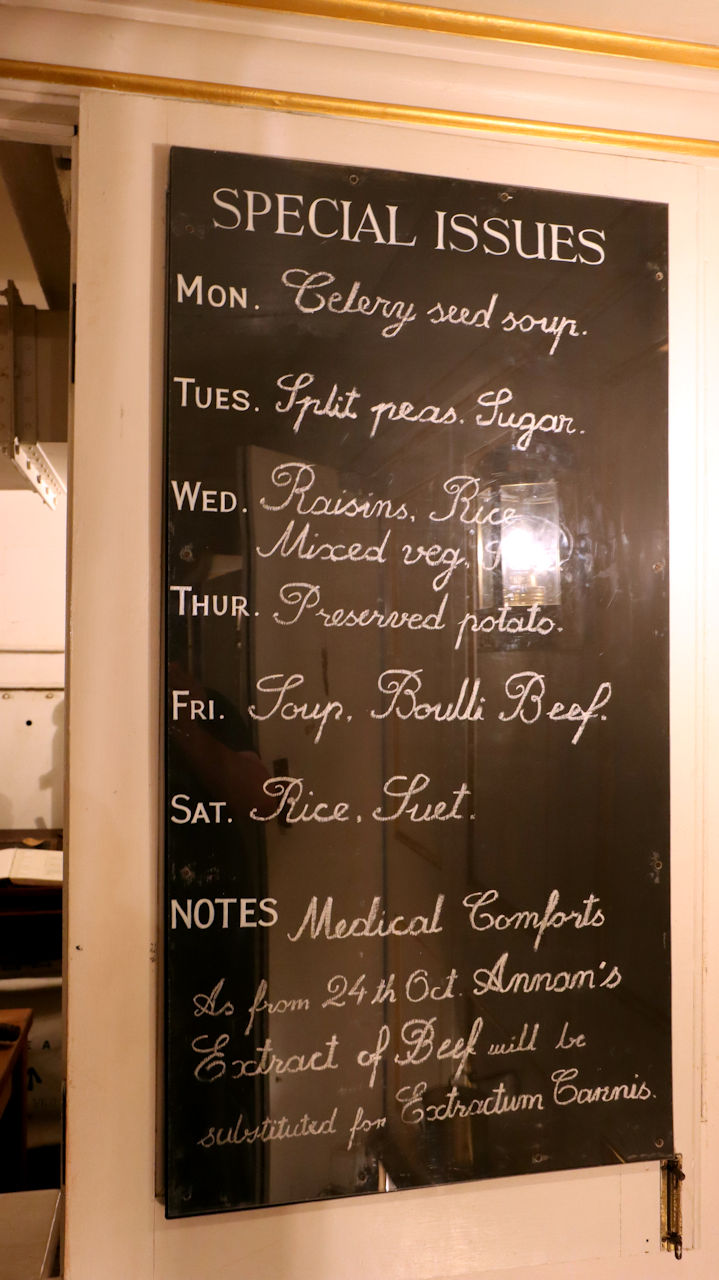 SPECIAL ISSUES
MON. Celery seed soup.
TUES. Split peas. Sugar.
WED. Raisins, Rice
Mixed veg,
THUR. Preserved potato.
FRI. Soup, Boulli Beef.
SAT. Rice, Suet.
NOTES Medical Comforts
As from 24th Oct. Annam's
Extract of Beef will be
substituted for Extractum Carnis.